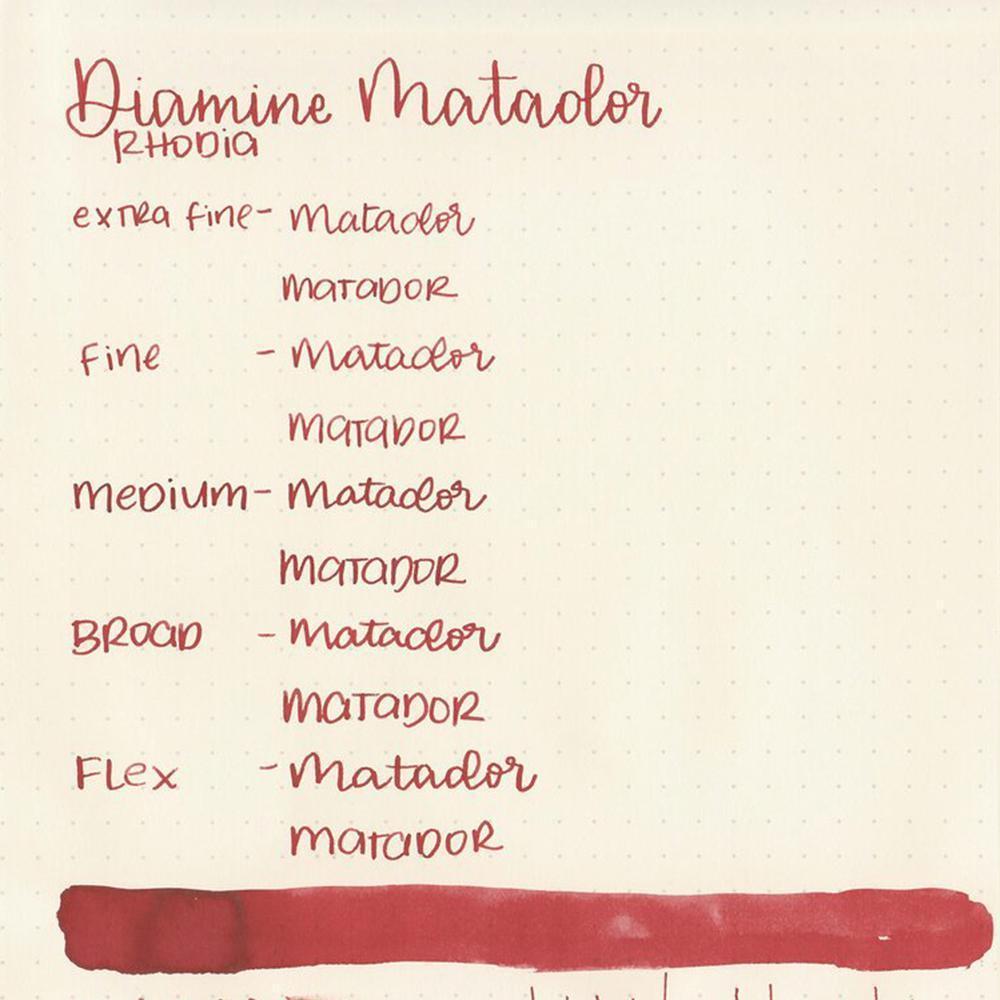 Diamine Matador
RHODIA
extra fine - Matador
MATADOR
Fine - Matador
MATADOR
MEDIUM - Matador
MATADOR
BROAD - Matador
MATADOR
FLex - Matador
MATADOR